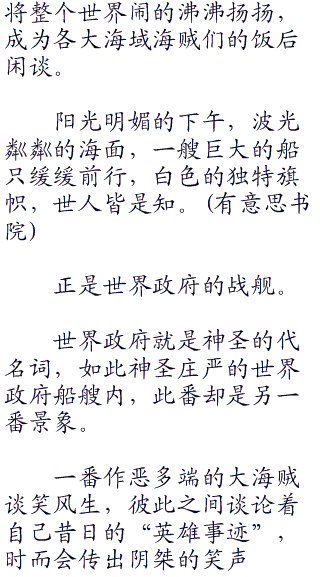 将整个世界闹的沸沸扬扬，
成为各大海域海贼们的饭后
闲谈。
阳光明媚的下午，波光
粼粼的海面，一艘巨大的船
只缓缓前行，白色的独特旗
帜，世人皆是知。(有意思书
院)
正是世界政府的战舰。
世界政府就是神圣的代
名词，如此神圣庄严的世界
政府船艘内，此番却是另一
番景象。
一番作恶多端的大海贼
谈笑风生，彼此之间谈论着
自己昔日的“英雄事迹”，
时而会传出阴桀的笑声